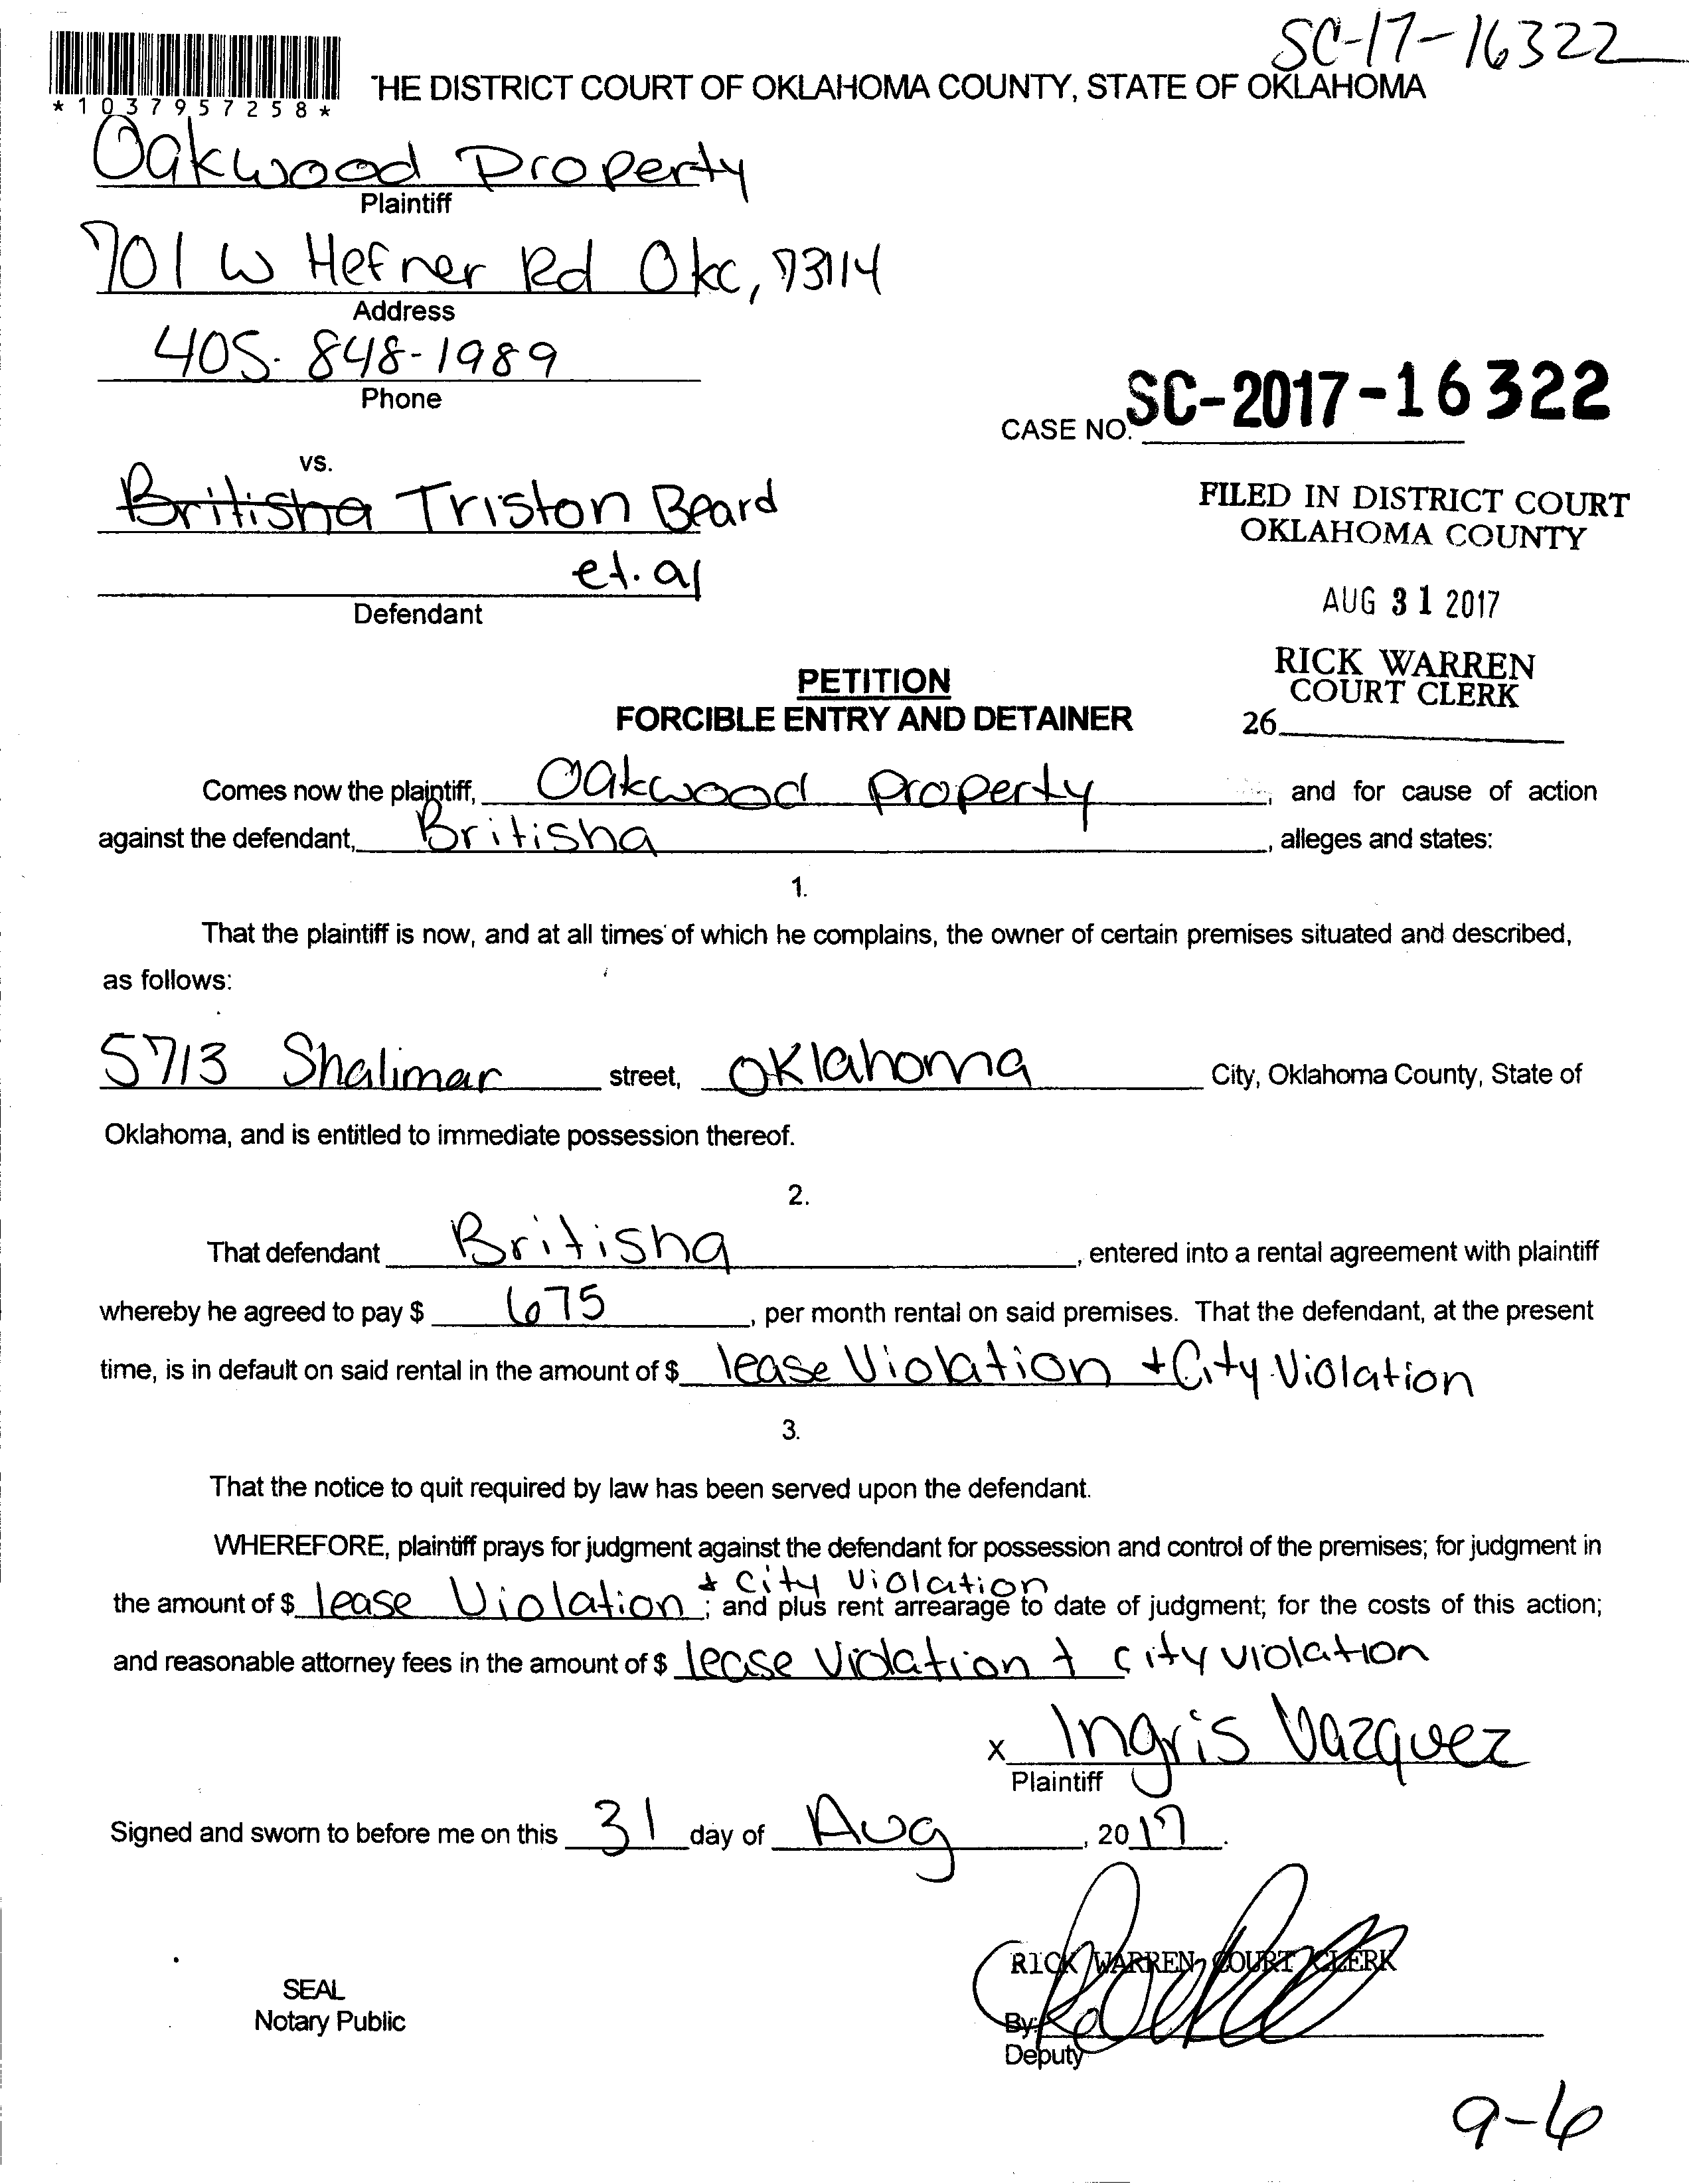 SC-17-16322
*1037957258*
THE DISTRICT COURT OF OKLAHOMA COUNTY, STATE OF OKLAHOMA
Oakwood Property
Plaintiff
701 W Hefner Rd Okc, 73114
Address
405-848-1989
Phone
CASE NO. SC-2017-16322
vs.
Britisha Triston Beard
et. al
Defendant
FILED IN DISTRICT COURT
OKLAHOMA COUNTY
AUG 31 2017
RICK WARREN
COURT CLERK
26
PETITION
FORCIBLE ENTRY AND DETAINER
Comes now the plaintiff, Oakwood Property, and for cause of action
against the defendant, Britisha, alleges and states:
1.
That the plaintiff is now, and at all times of which he complains, the owner of certain premises situated and described,
as follows:
5713 Shalimar street, Oklahoma City, Oklahoma County, State of
Oklahoma, and is entitled to immediate possession thereof.
2.
That defendant Britisha, entered into a rental agreement with plaintiff
whereby he agreed to pay $ 675, per month rental on said premises. That the defendant, at the present
time, is in default on said rental in the amount of $ lease Violation + City Violation
3.
That the notice to quit required by law has been served upon the defendant.
WHEREFORE, plaintiff prays for judgment against the defendant for possession and control of the premises; for judgment in
+ City Violation
the amount of $ lease Violation; and plus rent arrearage to date of judgment; for the costs of this action;
and reasonable attorney fees in the amount of $ lease violation + city violation
x Ingris Vazquez
Plaintiff
Signed and sworn to before me on this 31 day of Aug, 2017.
RICK WARREN, COURT CLERK
SEAL
Notary Public
By:
Deputy
9-6